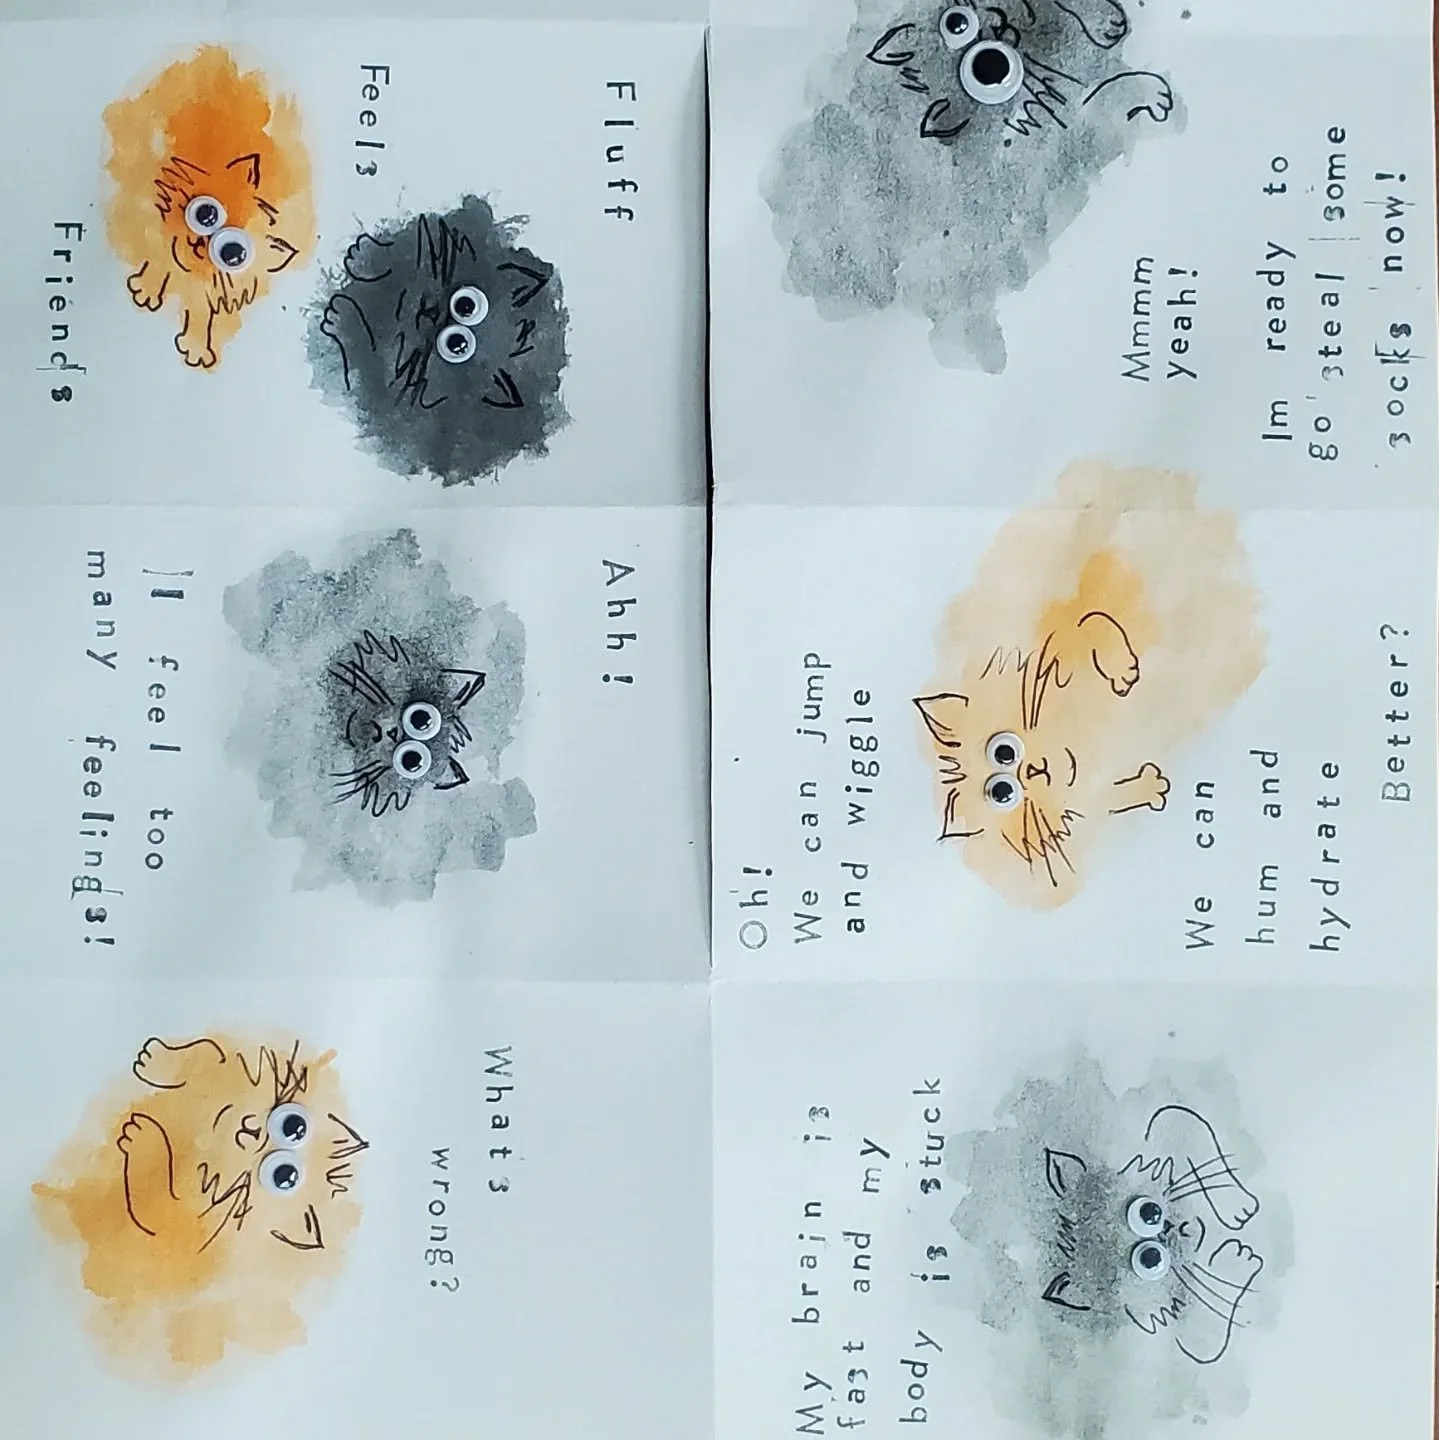 Fluff
Feels
Friends
Ahh!
I feel too
many feelings!
Whats
wrong?
My brain is
fast and my
body is stuck
Oh!
We can jump
and wiggle
We can
hum and
hydrate
Better?
Mmmm
yeah!
Im ready to
go steal some
socks now!